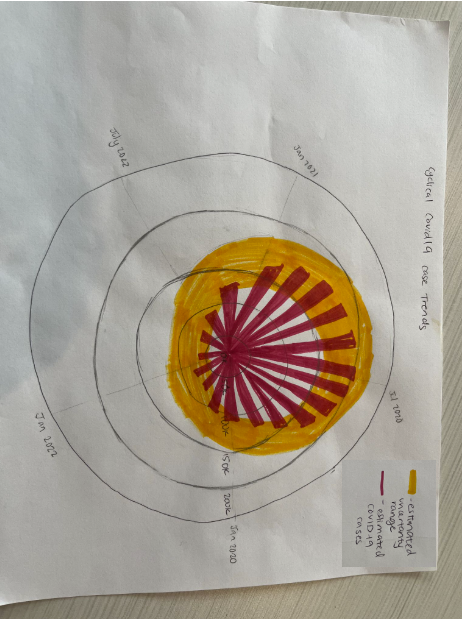 Cyclical Covid19 case Trends
Jan 2021
July 2022
Jul 2020
Jan 2022
Jan 2020
150K
200K
- estimated
uncertainty
range
- estimated
covid19
cases